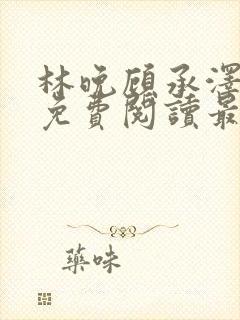 林晚顾承澤
免費閱讀最
藥味